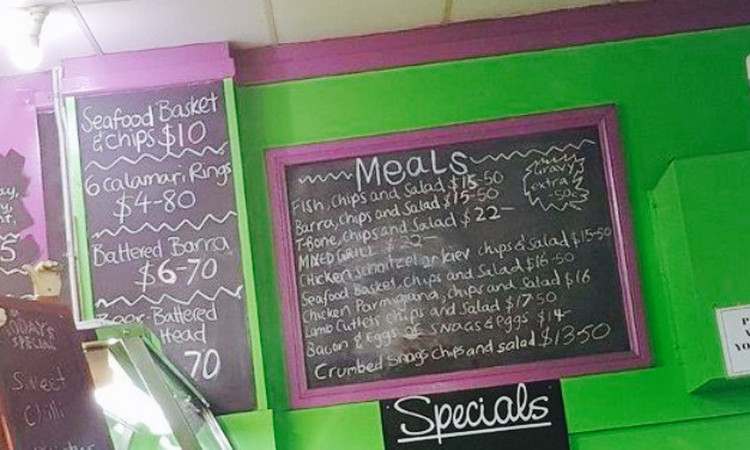 Seafood Basket
& chips $10
6 Calamari Rings
$4-80
Battered Barra
$6-70
Beer-Battered
Head
70
TODAY'S
SPECIAL
Sweet
Chilli
Meals
Gravy
extra
50c
Fish, Chips and Salad $15-50
Barra, chips and Salad $15-50
T-Bone, Chips and Salad $22-
MIXED GRILL $22-
Chicken Schnitzel or Kiev chips & Salad $15-50
Seafood Basket, Chips and Salad $16-50
Chicken Parmajana, chips and Salad $16
Lamb Cutlets Chips and Salad $17-50
Bacon & Eggs or SNAGS & Eggs $14-
Crumbed Snags chips and salad $13-50
Specials